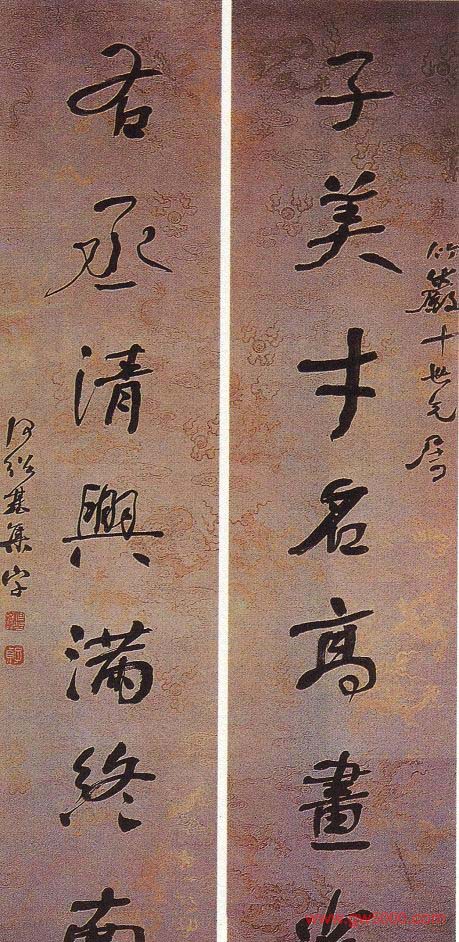 子美才名高畫
竹巖十世兄屬
右丞清興滿終南
何紹基集字